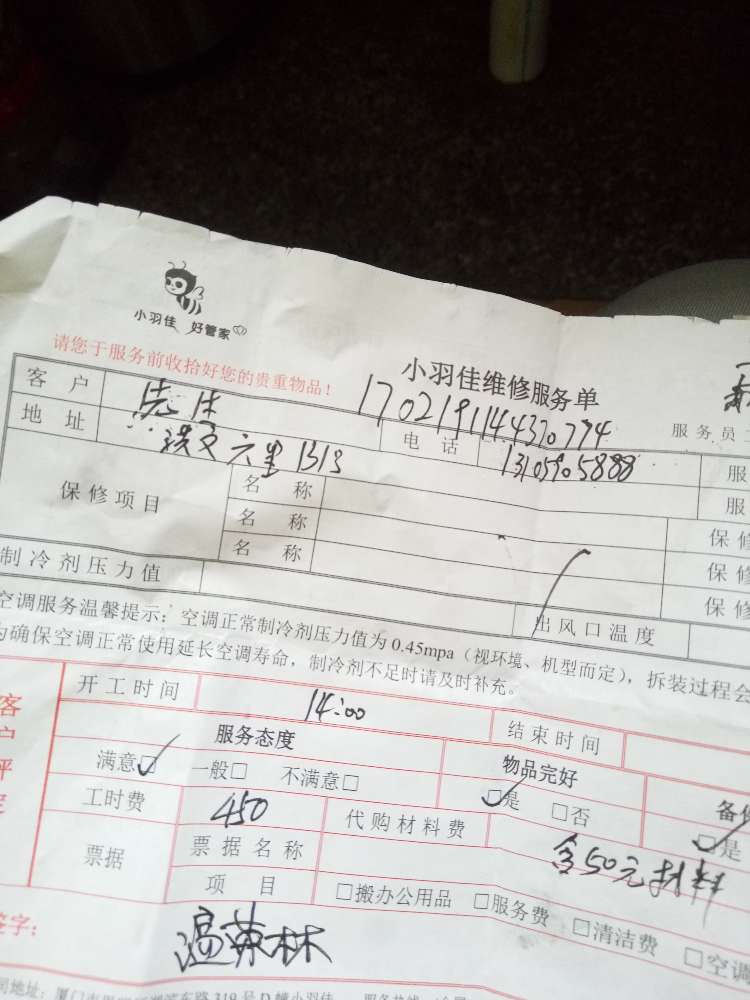 小羽佳 好管家
请您于服务前收拾好您的贵重物品！
小羽佳维修服务单
170219114430774
服务员
客户
电话
13105905888
服
地址
六里1313
服
保修项目
名称
保修
名称
保修
名称
保修
制冷剂压力值
出风口温度
空调服务温馨提示：空调正常制冷剂压力值为0.45mpa（视环境、机型而定），拆装过程会
为确保空调正常使用延长空调寿命，制冷剂不足时请及时补充。
客户评定
开工时间
14:00
结束时间
服务态度
物品完好
满意☑ 一般□ 不满意□
☑是 □否
☑是
工时费
450
代购材料费
含50元材料
票据
票据名称
项目
□搬办公用品 □服务费 □清洁费 □空调
签字：
温荣林
司地址：厦门市
东路319号D幢小羽佳
服务热线